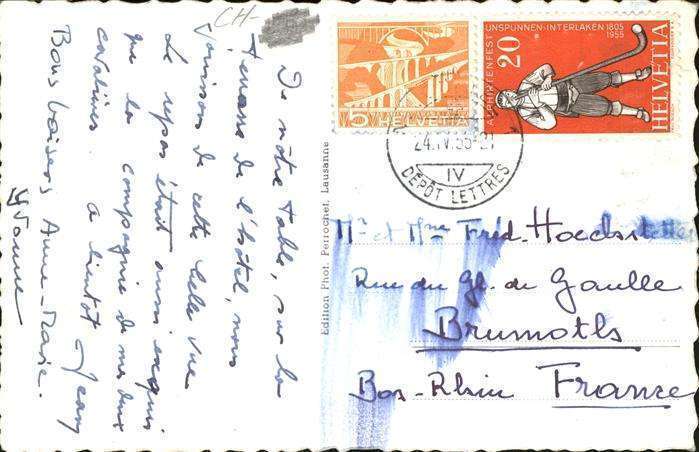 CH-
De nôtre table, sur la
terrasse de l'hôtel, nous
jouissons de cette belle vue
Le repas était aussi exquis
que la compagnie de mes deux
cavalières. A bientôt Jean
Bons baisers Anne-Marie.
Yvonne
Edition Phot. Perrochet, Lausanne
5 HELVETIA
HIRTENFEST UNSPUNNEN-INTERLAKEN 1805
1955
20
HELVETIA
24.IV.55-21
IV
DÉPÔT LETTRES
Mr et Mme Fréd.
Rue du Gl. de Gaulle
Brumoths
Bas-Rhin France